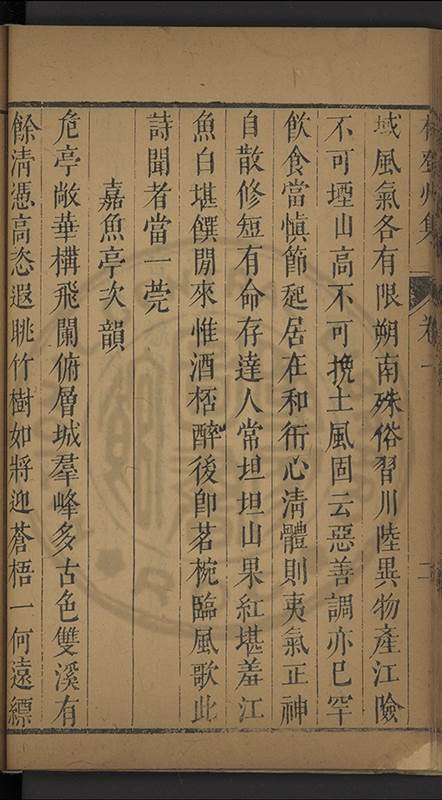 域風氣各有限朔南殊俗習川陸異物產江險
不可堙山高不可挽土風固云惡善調亦已罕
飲食當慎節起居在和衎心清體則夷氣正神
自散修短有命存達人常坦坦山果紅堪羞江
魚白堪饌閒來惟酒桮醉後卽茗椀臨風歌此
詩聞者當一莞
嘉魚亭次韻
危亭敞華構飛闌俯層城羣峰多古色雙溪有
餘清憑高恣遐眺竹樹如將迎蒼梧一何遠縹